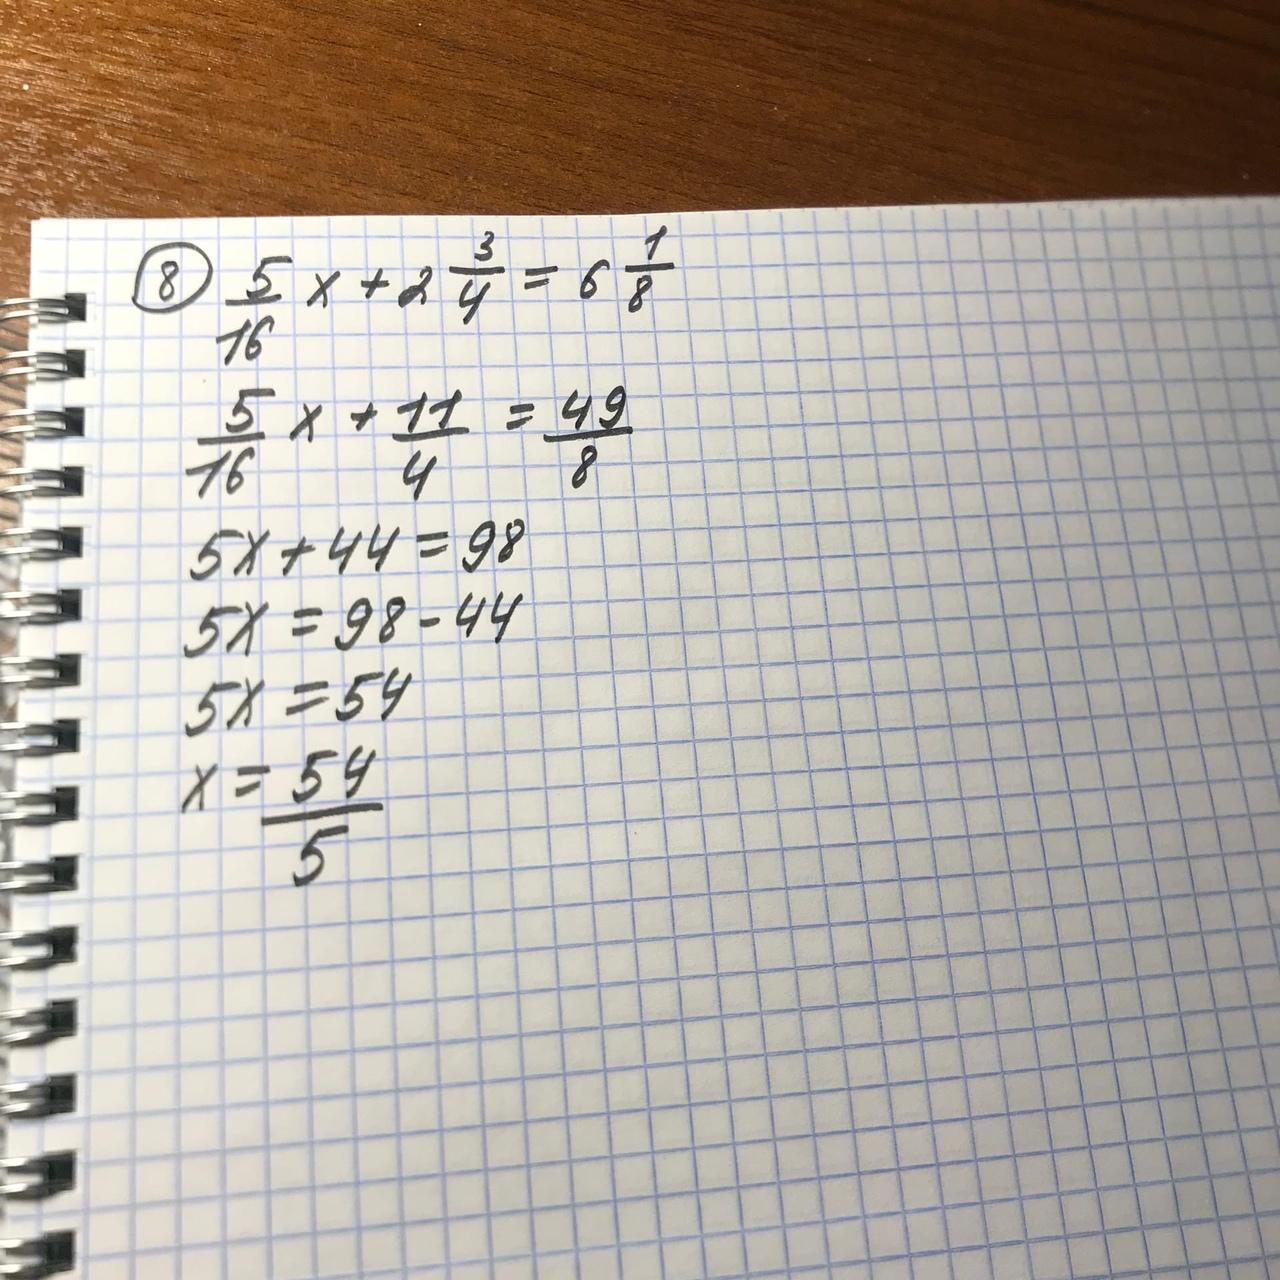 ⑧ 5/16 x + 2 3/4 = 6 1/8
5/16 x + 11/4 = 49/8
5x + 44 = 98
5x = 98 - 44
5x = 54
x = 54/5